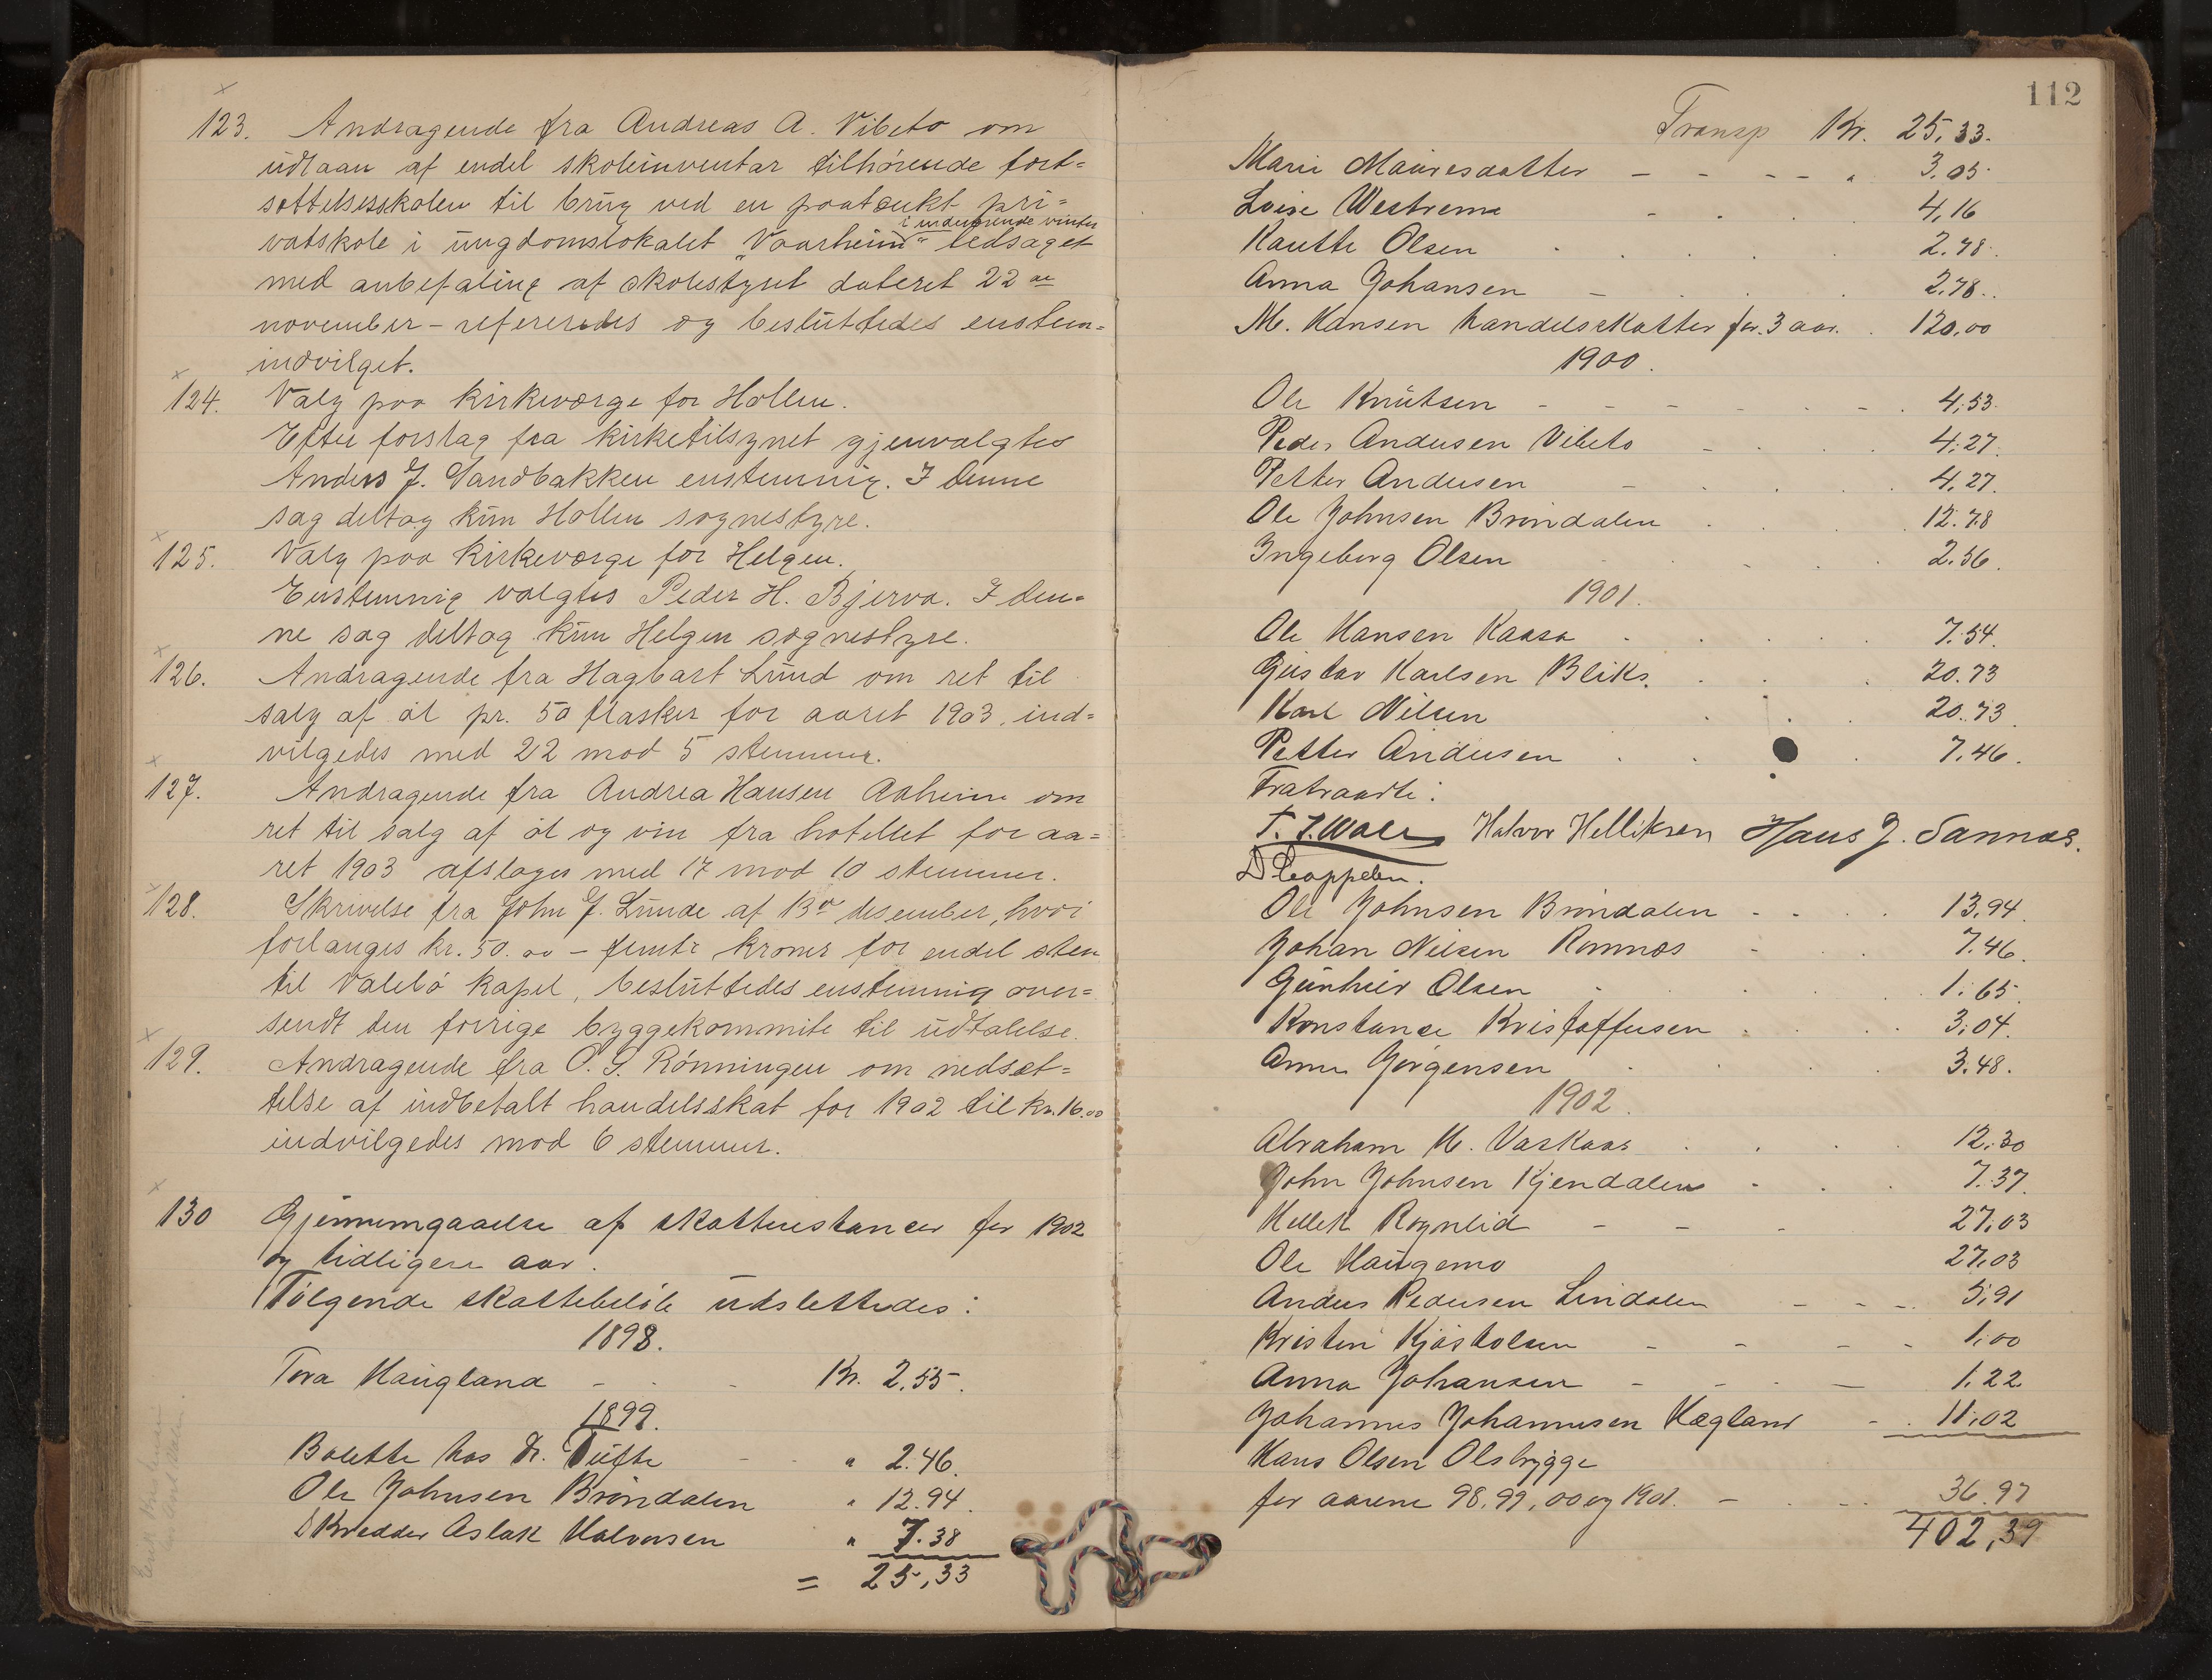 123. Andragende fra Andreas A. Vibeto om
udlaan af endel skoleinventar tilhørende fort=
sættelsesskolen til brug ved en paatænkt pri=
i indeværende vinter
vatskole i ungdomslokalet "Vaarheim" ledsaget
med anbefaling af skolestyret dateret 22de
november – refereredes og besluttedes enstem=
indvilget.
124. Valg paa kirkeværge for Hollen.
Efter forslag fra kirketilsynet gjenvalgtes
Anders J. Sandbakken enstemmig. I denne
sag deltog kun Hollen sognestyre.
125. Valg paa kirkeværge for Helgen.
Enstemmig valgtes Peder H. Bjerva. I den=
ne sag deltog kun Helgen sognestyre.
126. Andragende fra Hagbart Lund om ret til
salg af øl pr. 50 flasker for aaret 1903, ind=
vilgedes med 22 mod 5 stemmer.
127. Andragende fra Andrea Hansen Aaheim om
ret til salg af øl og vin fra hotellet for aa=
ret 1903 afsloges med 17 mod 10 stemmer.
128. Skrivelse fra John J. Lunde af 13de desember, hvori
forlanges kr. 50.00 – femti kroner for endel sten
til Valebø kapel, besluttedes enstemmig over=
sendt den forrige byggekommite til udtalelse.
129. Andragende fra O. S. Rønningen om nedsæt=
telse af indbetalt handelsskat for 1902 til kr. 16.00
indvilgedes mod 6 stemmer.
130 Gjennemgaaelse af skatterestancer for 1902
og tidligere aar.
Følgende skattebeløb udslettedes:
1898.
Tora Haugland - - - Kr. 2,55.
1899.
Bolette hos Dr. Tufte - - " 2.46.
Ole Johnsen Brøndalen " 12.94.
Skrædder Aslak Halvorsen " 7.38
= 25,33
112
Transp Kr. 25,33.
Marie Mauresdatter - - - - " 3.05.
Lovise Westrene - . . . 4,16
Kautte Olsen . . . . . 2.78.
Anna Johansen - . . . 2.78..
M. Hansen handelsskatter for 3 aar. . 120,00
1900.
Ole Knutsen - - - - . - . 4,53.
Peder Andersen Vibeto - . . . 4,27.
Petter Andersen - . . . 4,27.
Ole Johnsen Brøndalen . . . . 12.78
Ingeborg Olsen . . . . 2.56.
1901.
Ole Hansen Kaasa . . . . . 7.54.
Gustav Karlsen Bliks. . . . 20.73
Karl Nilsen . . . 20.73.
Petter Andersen . . . 7.46.
Fratraadte:
Halvor Helliksen Hans J. Sannæs.
D Cappelen.
Ole Johnsen Brøndalen - . . . 13.94.
Johan Nilsen Romnæs - . . 7.46.
Olsen . . . . 1.65.
Konstance Kristoffersen . . . . 3.04.
Anne Jørgensen . . . . 3.48.
1902.
Abraham H. Vaskaas . . . 12.30
John Johnsen Kjendalen - . . 7.37.
Hellek Rognlid - - - 27,03
Ole Haugemo 27,03
Anders Pedersen Lindalen - - -. 5,91
Kristen Kjøstolsen - - - - 1,00
Anna Johansen - - - — 1.22
Johannes Johannesen Hægland - . 11,02
Hans Olsen Olsbrygge
for aarene 98, 99, 00 og 1901. - . - . 36.97
402,39